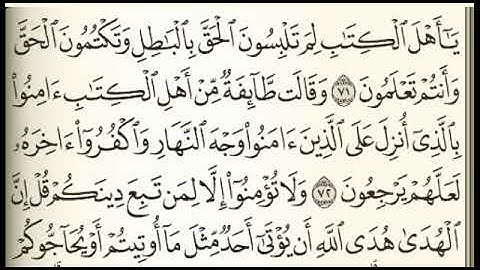 يَـٰٓأَهْلَ ٱلْكِتَـٰبِ لِمَ تَلْبِسُونَ ٱلْحَقَّ بِٱلْبَـٰطِلِ وَتَكْتُمُونَ ٱلْحَقَّ
وَأَنتُمْ تَعْلَمُونَ ٧١ وَقَالَت طَّآئِفَةٌ مِّنْ أَهْلِ ٱلْكِتَـٰبِ ءَامِنُوا۟
بِٱلَّذِىٓ أُنزِلَ عَلَى ٱلَّذِينَ ءَامَنُوا۟ وَجْهَ ٱلنَّهَارِ وَٱكْفُرُوٓا۟ ءَاخِرَهُۥ
لَعَلَّهُمْ يَرْجِعُونَ ٧٢ وَلَا تُؤْمِنُوٓا۟ إِلَّا لِمَن تَبِعَ دِينَكُمْ قُلْ إِنَّ
ٱلْهُدَىٰ هُدَى ٱللَّهِ أَن يُؤْتَىٰٓ أَحَدٌ مِّثْلَ مَآ أُوتِيتُمْ أَوْ يُحَآجُّوكُمْ